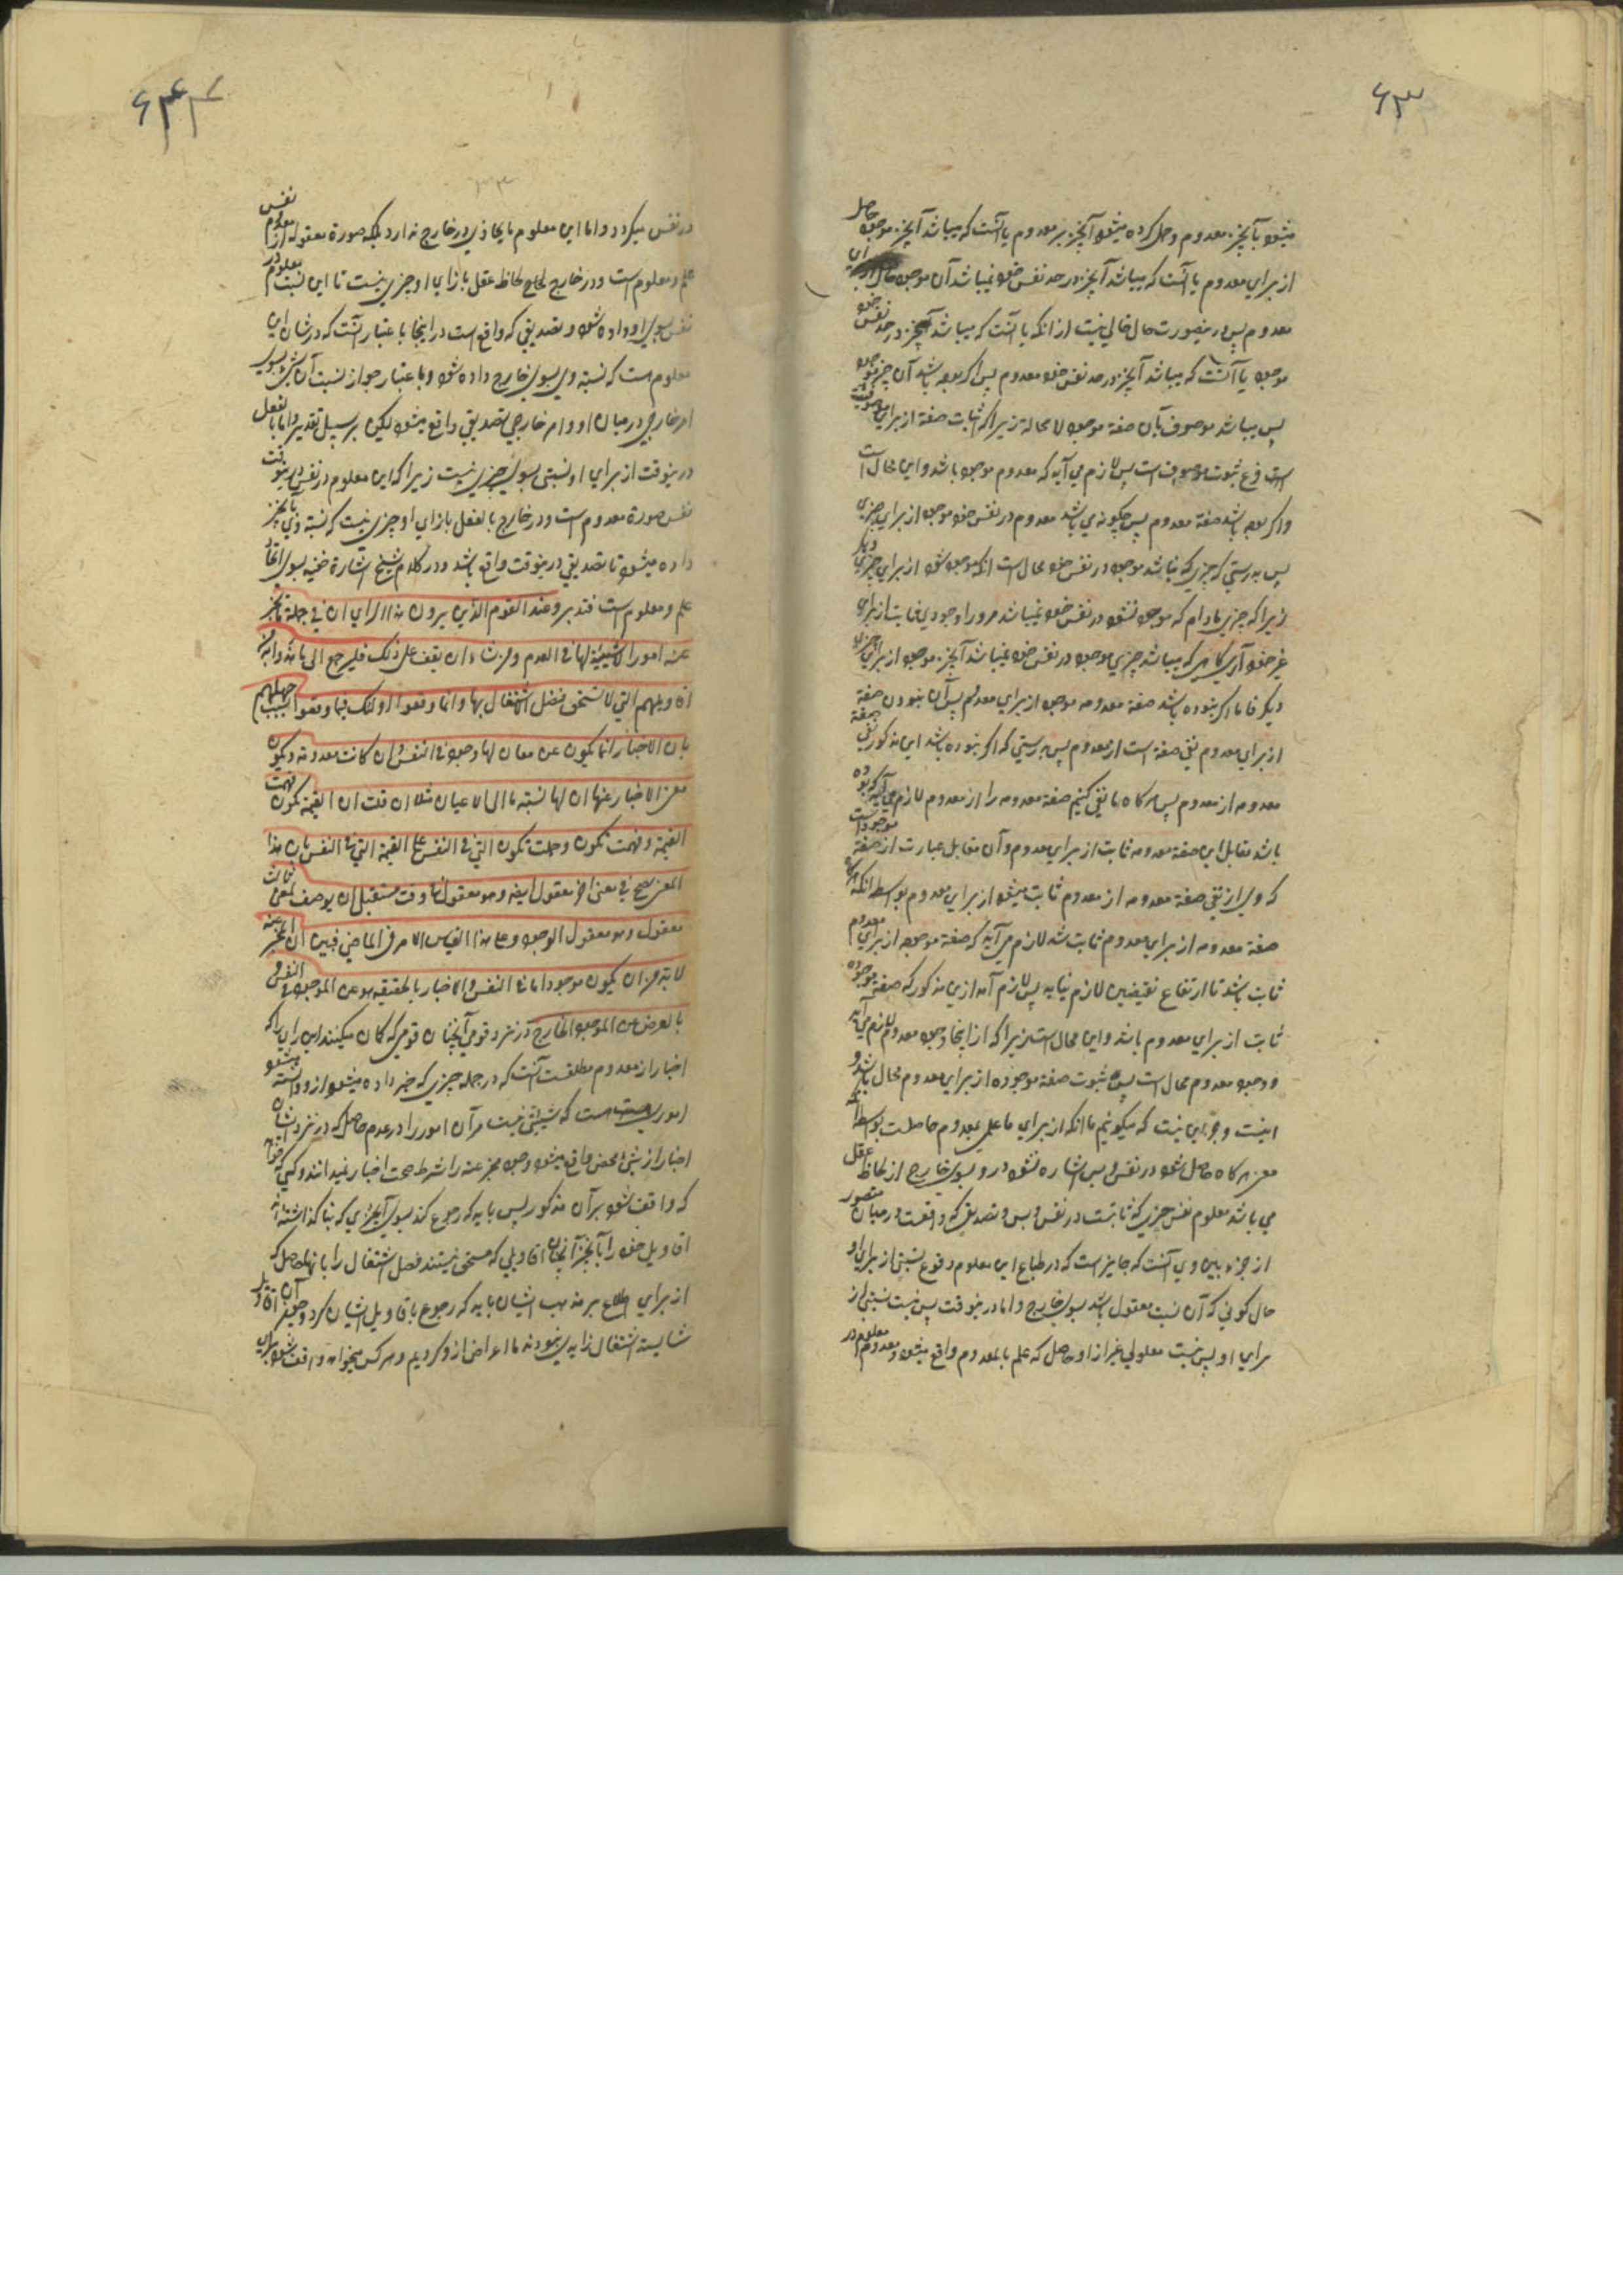 ۶۳
میشود بآنچیز معدوم و حمل کرده میشود آنچیز بر معدوم یا آنست که میباشد آنچیز موجود حاصل
از برای معدوم یا آنست که میباشد آنچیز در حد نفس خود نمیباشد آن موجود حال از برای
معدوم پس درینصورت حال خالی نیست از انکه یا آنست که میباشد آنچیز در حد نفس خود
موجود یا آنست که میباشد آنچیز در حد نفس خود معدوم پس اگر بوده باشد آن چیز موجود
پس میباشد موصوف بآن صفة موجود لا محالة زیرا که اثبات صفة از برای موصوف
است فرع ثبوت موصوف است پس لازم می آید که معدوم موجود باشد و این محال است
و اگر بوده باشد صفة معدوم پس چگونه می باشد معدوم در نفس خود موجود از برای چیزی
پس بدرستی که چیزی که نباشد موجود در نفس خود محال است انکه موجود شود از برای چیزی دیگر
زیرا که چیزی مادام که موجود نشود در نفس خود نمیباشد مر او را وجودی ثابت از برای
غیر خود آری گاهی که میباشد چیزی موجود در نفس خود نمیباشد آنچیز موجود از برای چیزی
دیگر فاما اگر نبوده باشد صفة معدومه موجود از برای معدوم پس آن نبودن صفة
از برای معدوم نفی صفة است از معدوم پس بدرستی که اگر نبوده باشد این مذکور نفی صفة
معدومه از معدوم پس هر گاه ما نفی کنیم صفة معدومه را از معدوم لازم می آید که بوده
باشد مقابل این صفة معدومه ثابت از برای معدوم و آن مقابل عبارت از صفة موجود است
که وی از نفی صفة معدومه از معدوم ثابت میشود از برای معدوم بواسطه انکه هرگاه
صفة معدومه از برای معدوم ثابت شد لازم می آید که صفة موجود از برای معدوم
ثابت باشد تا ارتفاع نقیضین لازم نیاید پس لازم آمد ازین مذکور که صفة موجوده
ثابت از برای معدوم باشد و این محال است زیرا که از اینجا وجود معدوم لازم می آید
و وجود معدوم محال است پس ثبوت صفة موجوده از برای معدوم محال باشد و
اینست و جز این نیست که میگوئیم ما انکه از برای ما علمی بمعدوم حاصلست بواسطه آنکه
معنی هر گاه حاصل شود در نفس و بس اشاره نشود در و بسوی خارج از لحاظ عقل
می باشد معلوم نفس چیزی که ثابتست در نفس و بس و تصدیقی که واقعست در میان متصور
از جزء بین وی آنست که جایز است که در طباع این معلوم وقوع نسبتی از برای او
حال کونی که آن نسبت معقول باشد بسوی خارج و اما درینوقت پس نیست نسبتی از
برای او پس نیست معلولی غیر از او حاصل که علم بالمعدوم واقع میشود و معدوم معلوم در
۶۳۴
در نفس میگردد و اما این معلوم ما یحاذی در خارج ندارد بلکه صورة معقوله از معدوم نفس
علم و معلوم است و در خارج لحاظ عقل بازای او چیزی نیست تا این نسبت معلوم در
نفس بسوی او داده شود و تصدیقی که واقع است در اینجا با عتبار آنست که در شان این
معلوم هست که نسبة وی بسوی خارج داده شود و با عتبار جواز نسبت آن شیء بسوی
امر خارجی در میان او و امر خارجی تصدیق واقع میشود لیکن بر سبیل تقدیر و اما بالفعل
درینوقت از برای او نسبتی بسوی چیزی نیست زیرا که این معلوم در نفس درینوقت
نفس صورة معدوم است و در خارج بالفعل بازای او چیزی نیست که نسبة وی بآنچیز
داده میشود تا تصدیقی درینوقت واقع باشد و در کلام شیخ اشارة خفیه بسوی اتحاد
علم و معلوم است فتدبر و عند القوم الذین یرون هذا الرای ان فی جملة ما یخبر
عنه امورا لا شیئیة لها فی العدم و من شاء ان یقف علی ذلک فلیرجع الی ما هذوا به من
اقاویلهم التی لا تستحق فضل اشتغال بها و انما وقعوا اولئک فیما وقعوا بسبب جهلهم
بان الاخبار انما یکون عن معان لها وجود فی النفس و ان کانت معدومة و یکون
معنی الاخبار عنها ان لها نسبة ما الی الاعیان مثلا ان قلت ان القیمة تکون فهمت
القیمة و فهمت تکون و حملت تکون التی فی النفس علی القیمة التی فی النفس بان هذا
المعنی یصح فی معنی اخر معقول ایضا و هو معقول فی وقت مستقبل ان یوصف بمعنی ثالث
معقول و هو معقول الوجود و علی هذا القیاس الامر فی الماضی فبین ان المخبر عنه
لا بد من ان یکون موجودا ما فی النفس و الاخبار بالحقیقه هو عن الموجود فی النفس و
بالعرض عن الموجود الخارج در نزد قومی آنچنان قومی که گمان میکنند این رای را که
اخبار از معدوم مطلقست آنست که در جمله چیزی که خبر داده میشود از و دانسته میشود
اموری هست که شیئیتی نیست مر آن امور را در عدم حاصل که در نزد ایشان
اخبار از شیء محض واقع میشود و وجود مخبر عنه را شرط صحت اخبار نمیدانند و کسی که خواهد
که واقف شود بر آن مذکور پس باید که رجوع کند بسوی آنچیزی که بنا گذاشته اند
اقاویل خود را بآنچیز آنچنان اقاویلی که مستحق نیستند فضل اشتغال را بانها حاصل که
از برای اطلاع بر مذهب ایشان باید که رجوع باقاویل ایشان کرد و چون آن اقاویل
شایسته اشتغال زاید نبودند ما اعراض ازو کردیم و هر کس میخواهد واقف شود برای